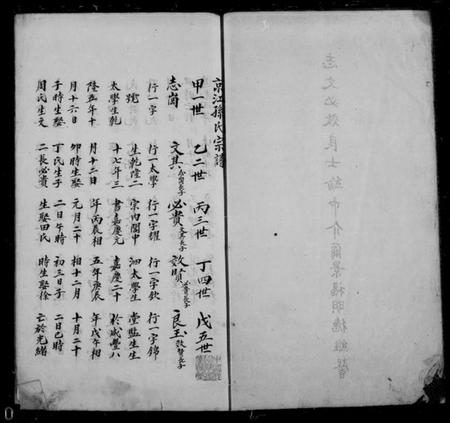 京江孫氏宗譜
甲一世 乙二世 丙三世 丁四世 戊五世
志崗 文其 志崗長子 必貴 文其長子 效賢 必貴長子 良玉 效賢長子
行一字 行一太學 行一字耀 行一字欽 行一字錦
號 生乾隆二 宗內閣中 泗太學生 堂監生生
太學生乾 十七年三 書嘉慶元 嘉慶二十 於咸豐八
隆五年十 月十二日 年丙辰相 五年庚辰 年戊午相
月十六日 卯時生娶 元月二十 相十二月 十月二十
子時生娶 丁氏生子 二日午時 初三日子 二日巳時
周氏生文 二長必貴 生娶田氏 時生娶徐 亡於光緒
志文必效良士 中介爾景福明德維馨